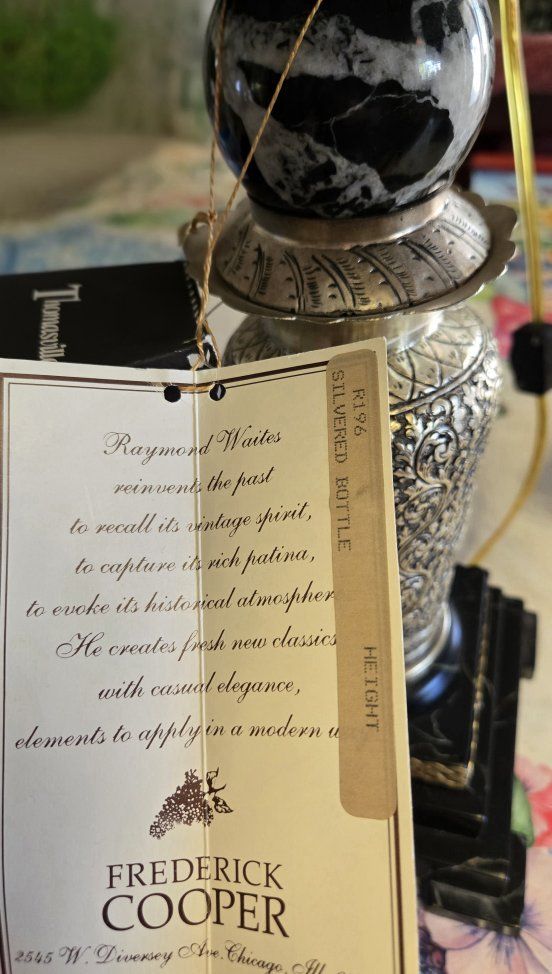 Thomasville
Raymond Waites
reinvents the past
to recall its vintage spirit,
to capture its rich patina,
to evoke its historical atmospher
He creates fresh new classics
with casual elegance,
elements to apply in a modern
R196
SILVERED BOTTLE
HEIGHT
FREDERICK
COOPER
2545 W. Diversey Ave. Chicago, Ill